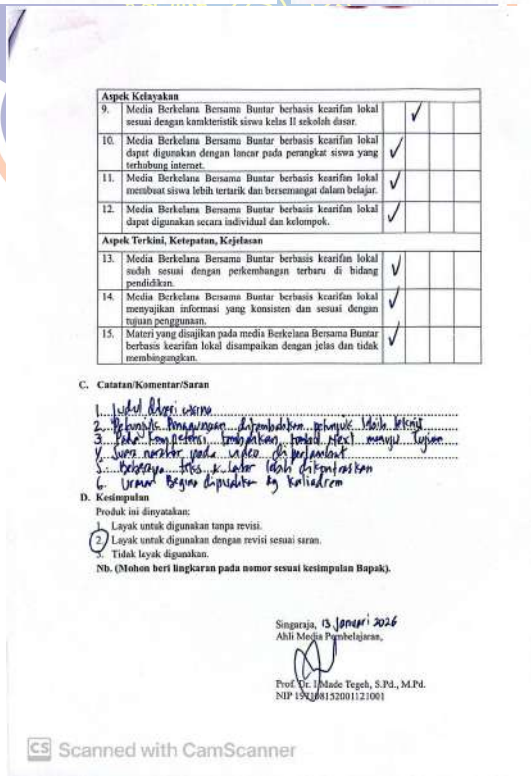 Aspek Kelayakan
9. Media Berkelana Bersama Buntar berbasis kearifan lokal
sesuai dengan karakteristik siswa kelas II sekolah dasar.
10. Media Berkelana Bersama Buntar berbasis kearifan lokal
dapat digunakan dengan lancar pada perangkat siswa yang
terhubung internet.
11. Media Berkelana Bersama Buntar berbasis kearifan lokal
membuat siswa lebih tertarik dan bersemangat dalam belajar.
12. Media Berkelana Bersama Buntar berbasis kearifan lokal
dapat digunakan secara individual dan kelompok.
Aspek Terkini, Ketepatan, Kejelasan
13. Media Berkelana Bersama Buntar berbasis kearifan lokal
sudah sesuai dengan perkembangan terbaru di bidang
pendidikan.
14. Media Berkelana Bersama Buntar berbasis kearifan lokal
menyajikan informasi yang konsisten dan sesuai dengan
tujuan penggunaan.
15. Materi yang disajikan pada media Berkelana Bersama Buntar
berbasis kearifan lokal disampaikan dengan jelas dan tidak
membingungkan.
C. Catatan/Komentar/Saran
1. Judul diberi warna
2. Petunjuk Penggunaan ditambahkan petunjuk lebih teknis
3. Pada kompetensi tambahkan tombol Next menuju tujuan
4. Suara narator pada video diperlambat
5. Beberapa teks & latar lebih dikontraskan
6. Urutan
D. Kesimpulan
Produk ini dinyatakan:
1. Layak untuk digunakan tanpa revisi.
2. Layak untuk digunakan dengan revisi sesuai saran.
3. Tidak layak digunakan.
Nb. (Mohon beri lingkaran pada nomor sesuai kesimpulan Bapak).
Singaraja, 13 Januari 2026
Ahli Media Pembelajaran,
Prof. Dr. I Made Tegeh, S.Pd., M.Pd.
NIP 197108152001121001
CS Scanned with CamScanner